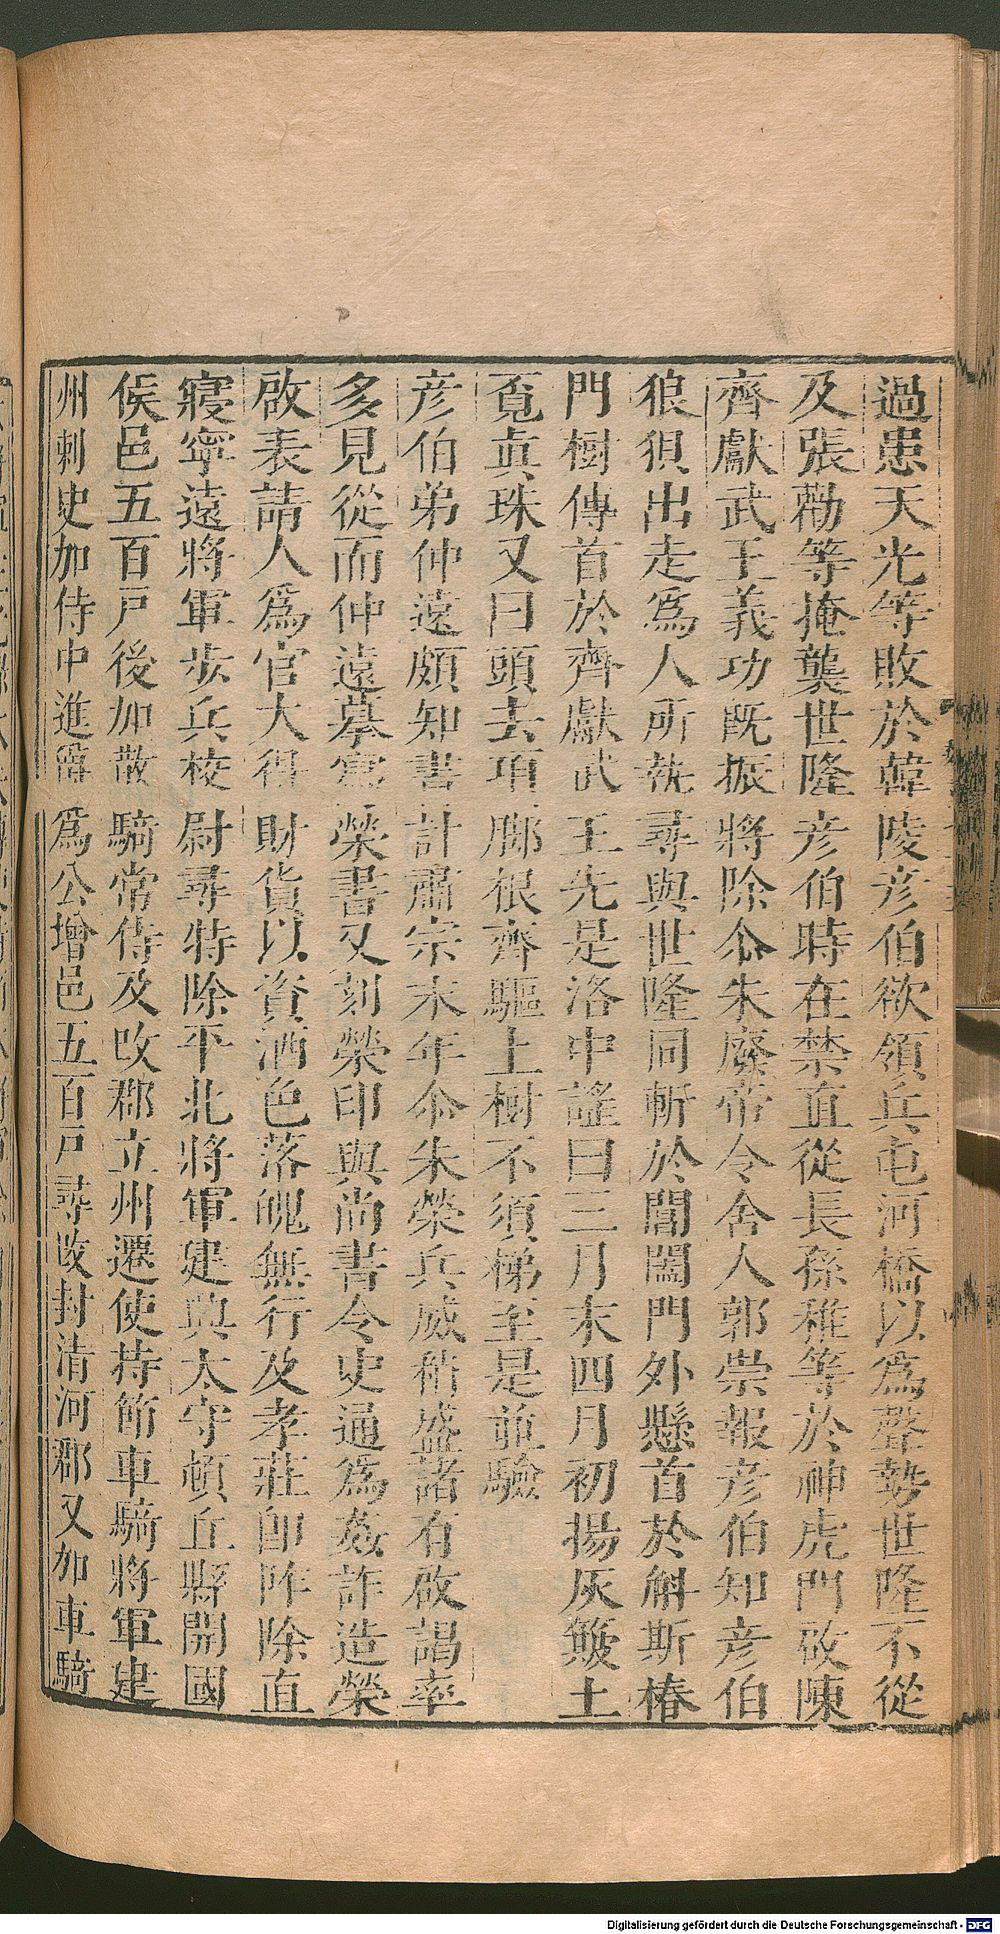 過患天光等敗於韓陵彦伯欲領兵屯河橋以爲聲勢世隆不從
及張勸等掩襲世隆彦伯時在禁直從長孫稚等於神虎門啟陳
齊獻武王義功既振將除尒朱廢帝令舍人郭崇報彦伯知彦伯
狼狽出走爲人所執尋與世隆同斬於閶闔門外懸首於斛斯椿
門樹傳首於齊獻武王先是洛中謠曰三月末四月初揚灰簸土
覓眞珠又曰頭去項脚根齊驅上樹不須梯至是並驗
彦伯弟仲遠頗知書計肅宗末年尒朱榮兵威稍盛諸有啟謁率
多見從而仲遠摹寫榮書又刻榮印與尚書令史通爲姦詐造榮
啟表請人爲官大得財貨以資酒色落魄無行及孝莊卽阼除直
寢寧遠將軍步兵校尉尋特除平北將軍建興太守頓丘縣開國
侯邑五百戸後加散騎常侍及改郡立州遷使持節車騎將軍建
州刺史加侍中進爵爲公增邑五百戸尋改封清河郡又加車騎
Digitalisierung gefördert durch die Deutsche Forschungsgemeinschaft - DFG